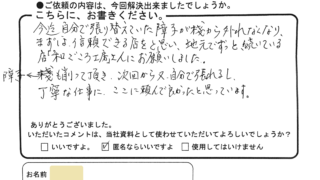 ●ご依頼の内容は、今回解決出来ましたでしょうか。
こちらに、お書きください。
今迄自分で張り替えていた障子が桟から外れなくなり、
まずは、信頼できる店をと思い、地元でずっと続いている
店「和ごころ工房」さんにお願いしました。
障子←桟も削って頂き、次回から又、自分で張れるし、
丁寧な仕事に、ここに頼んで良かったと思っています。
ありがとうございました。
いただいたコメントは、当社資料として使わせていただいてよろしいでしょうか?
□いいですよ。 ☑匿名ならいいですよ □使用してはいけません
お名前